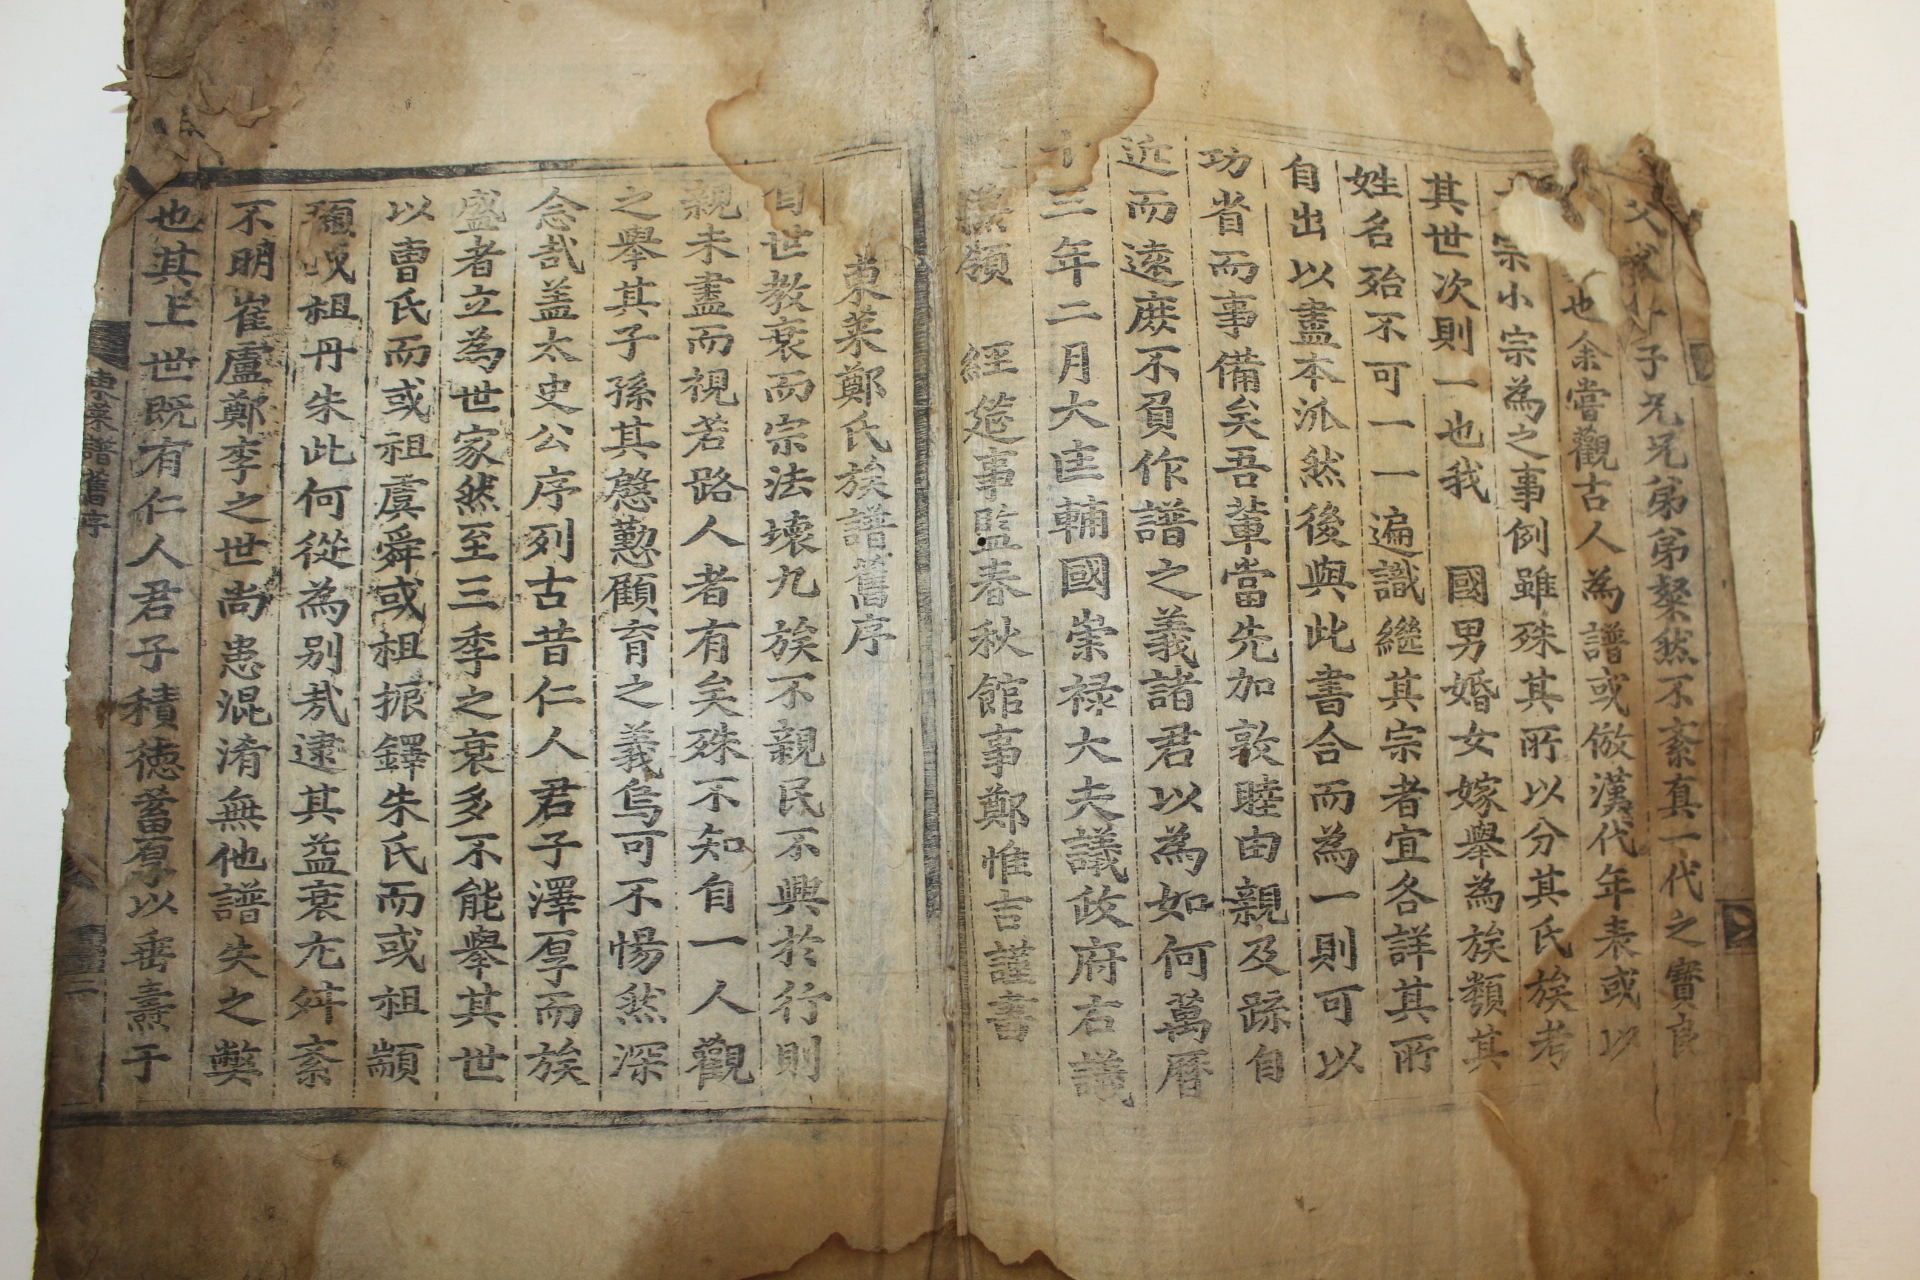 子兄兄弟弟粲然不紊真一代之寶
也余嘗觀古人為譜或倣漢代年表或以
宗小宗為之事例雖殊其所以分其氏族考
其世次則一也我 國男婚女嫁舉為族類其
姓名殆不可一一遍識繼其宗者宜各詳其所
自出以盡本派然後與此書合而為一則可以
功省而事備矣吾輩當先加敦睦由親及踈自
近而遠庶不負作譜之義諸君以為如何萬曆
十三年二月大匡輔國崇祿大夫議政府右議
領 經筵事監春秋館事鄭惟吉謹書
東萊鄭氏族譜舊序
自世教衰而宗法壞九族不親民不興於行則
親未盡而視若路人者有矣殊不知自一人觀
之舉其子孫其慇懃顧育之義烏可不惕然深
念哉盖太史公序列古昔仁人君子澤厚而族
盛者立為世家然至三季之衰多不能舉其世
以曹氏而或祖虞舜或祖振鐸朱氏而或祖顓
頊或祖丹朱此何從為别㢤逮其益衰尤舛紊
不明崔盧鄭李之世尚患混淆無他譜失之弊
也其上世既有仁人君子積德蓄厚以垂燾于
東萊譜舊序
二